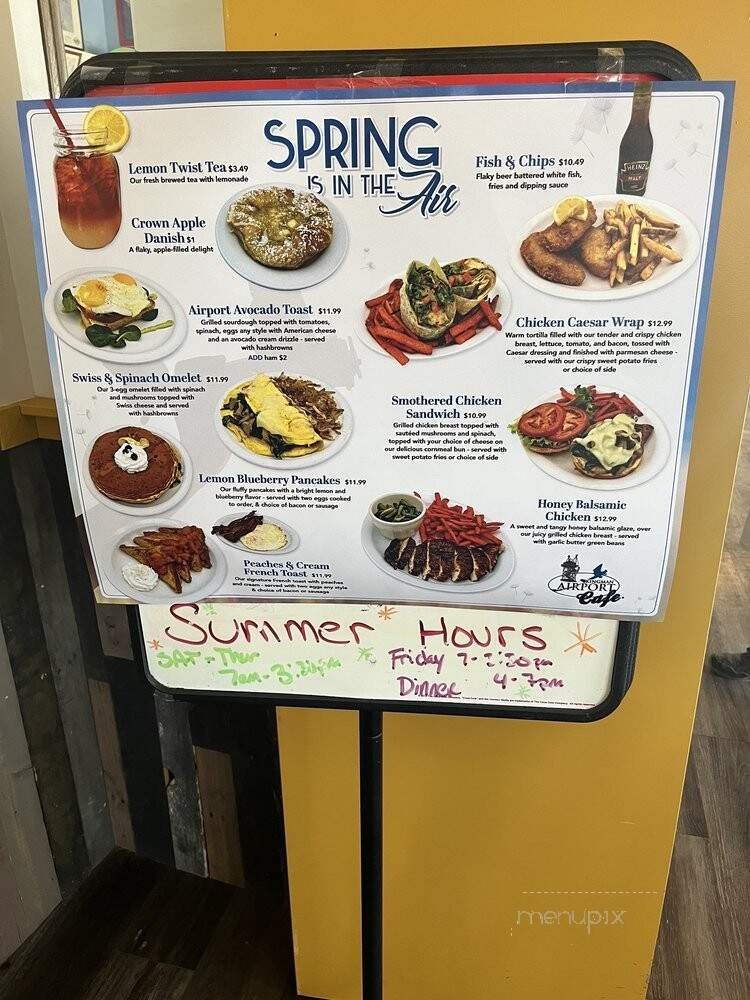 SPRING
IS IN THE
Air
Lemon Twist Tea $3.49
Our fresh brewed tea with lemonade
Crown Apple
Danish $1
A flaky, apple-filled delight
Airport Avocado Toast $11.99
Grilled sourdough topped with tomatoes,
spinach, eggs any style with American cheese
and an avocado cream drizzle - served
with hashbrowns
ADD ham $2
Swiss & Spinach Omelet $11.99
Our 3-egg omelet filled with spinach
and mushrooms topped with
Swiss cheese and served
with hashbrowns
Lemon Blueberry Pancakes $11.99
Our fluffy pancakes with a bright lemon and
blueberry flavor - served with two eggs cooked
to order, & choice of bacon or sausage
Peaches & Cream
French Toast $11.99
Our signature French toast with peaches
and cream - served with two eggs any style
& choice of bacon or sausage
Fish & Chips $10.49
Flaky beer battered white fish,
fries and dipping sauce
HEINZ
MALT
Chicken Caesar Wrap $12.99
Warm tortilla filled with our tender and crispy chicken
breast, lettuce, tomato, and bacon, tossed with
Caesar dressing and finished with parmesan cheese -
served with our crispy sweet potato fries
or choice of side
Smothered Chicken
Sandwich $10.99
Grilled chicken breast topped with
sautéed mushrooms and spinach,
topped with your choice of cheese on
our delicious cornmeal bun - served with
sweet potato fries or choice of side
Honey Balsamic
Chicken $12.99
A sweet and tangy honey balsamic glaze, over
our juicy grilled chicken breast - served
with garlic butter green beans
KINGMAN
AIRPORT
Cafe
Summer Hours
SAT - Thur
7am - 3:30pm
Friday 7 -
Dinner 4 - 7pm
menupix